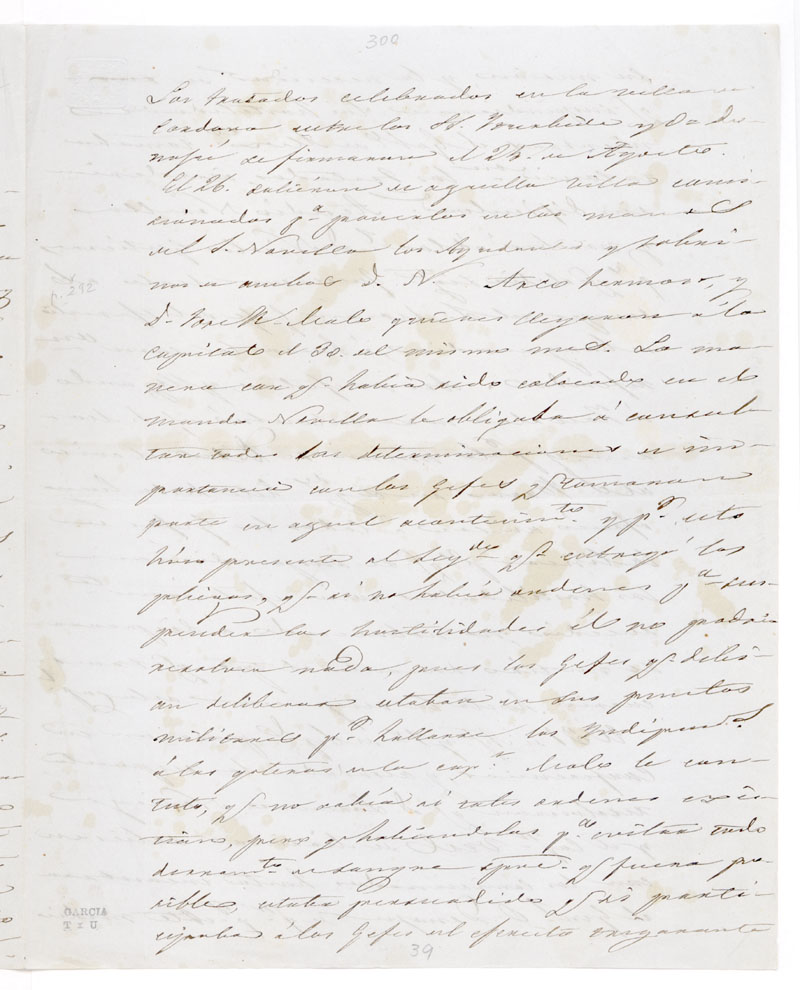 300
Los tratados celebrados en la villa de
Cordova entre los SS. Yturbide y O= Do-
nojú se firmaron el 25. de Agosto.
El 26. salieron de aquella villa comi-
sionados p.ª ponerlos en las manos
del S. Novella los Ayudan.s y sobri-
nos de ambos D. N. Arco hermoso, y
D= Jose M= Malo quienes llegaron á la
capital el 30. del mismo mes. La ma-
nera con q.e habia sido colocado en el
mando Novella le obligaba á consul-
tar todas las determinaciones de im-
portancia con los Gefes q.e tomaron
parte en aquel acontecim.to y p.r esto
hizo presente al q.e entregó los
pliegos, q.e si no habia ordenes p.a sus-
pender las hostilidades él no podria
resolver nada, pues los Gefes q.e debi-
an deliberar estaban en sus puntos
militares p.r hallarse los Yndepend.s
á las goteras de la cap.l Malo le con-
testó, q.e no sabia si tales ordenes exis-
tian, pero q.e habiendolas p.a evitar todo
derram.to de sangre q.e fuera po-
sible, estaba persuadido q.e si partici-
paba á los Gefes del ejercito trigarante
292
GARCIA
39